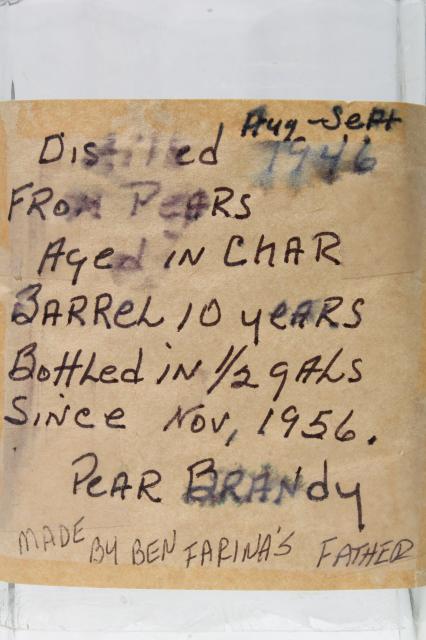 Aug-Sept
Distilled 1946
FROM PeARS
Aged iN CHAR
BARReL 10 yeARS
Bottled iN 1/2 gALs
Since Nov, 1956.
PeAR BRANdy
MADE BY BEN FARINA'S FATHER